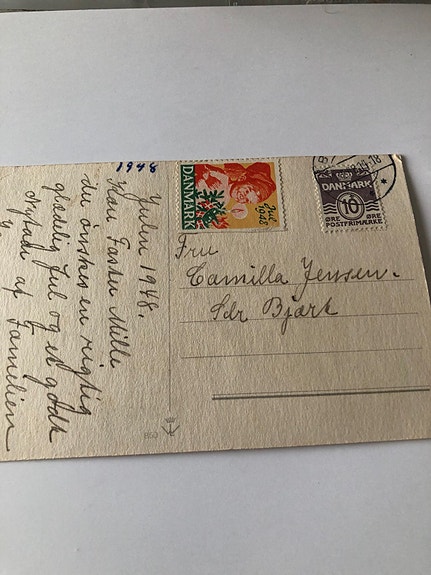 1948
Julen 1948.
Kær Faster Mille
du önskes en rigtig
glædelig Jul og et godt
Nytaar af Familien
DANMARK
Jul
1948
DANMARK
10
ØRE
ØRE
POSTFRIMÆRKE
Fru
Camilla Jensen.
Sdr Bjært